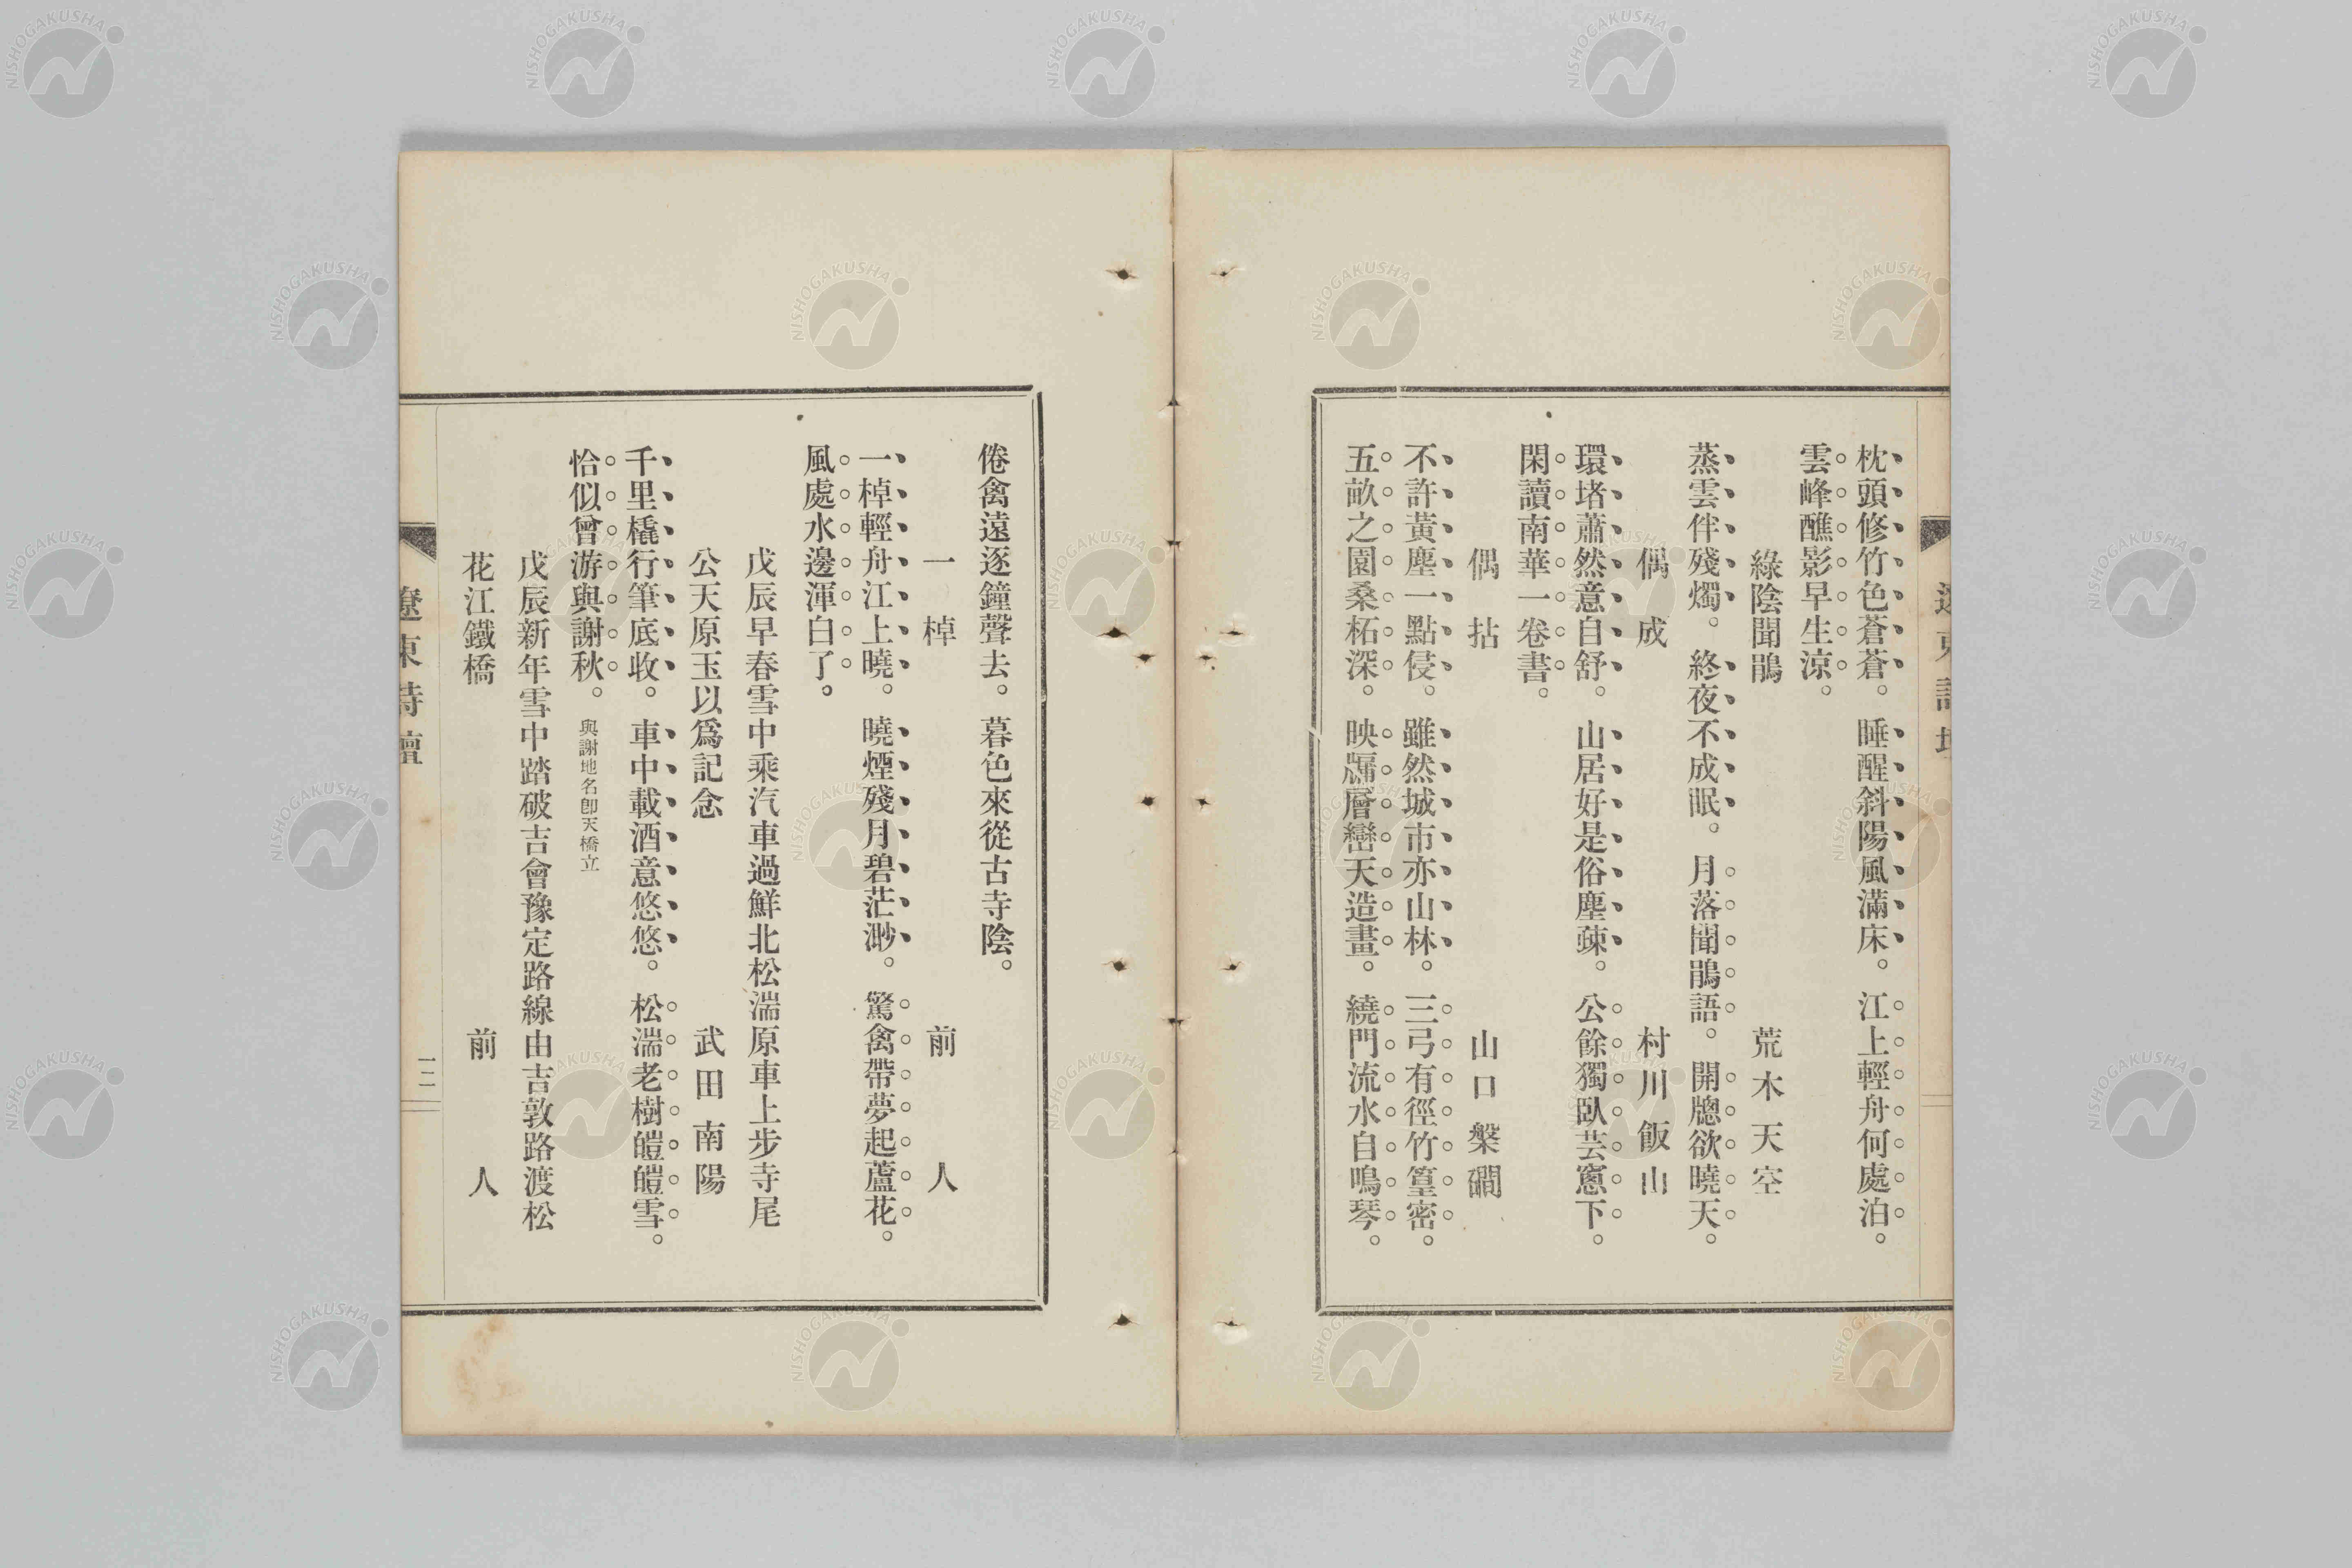 枕頭修竹色蒼蒼。睡醒斜陽風滿床。江上輕舟何處泊。
雲峰醮影早生涼。
綠陰聞鵑 荒木天空
蒸雲伴殘燭。終夜不成眠。月落聞鵑語。開牕欲曉天。
偶成 村川飯山
環堵蕭然意自舒。山居好是俗塵疎。公餘獨臥芸窻下。
閑讀南華一卷書。
偶拈 山口槃磵
不許黃塵一點侵。雖然城市亦山林。三弓有徑竹篁密。
五畝之園桑柘深。映牖層巒天造畫。繞門流水自鳴琴。
倦禽遠逐鐘聲去。暮色來從古寺陰。
一棹 前人
一棹輕舟江上曉。曉煙殘月碧茫渺。驚禽帶夢起蘆花。
風處水邊渾白了。
戊辰早春雪中乘汽車過鮮北松湍原車上步寺尾
公天原玉以爲記念 武田南陽
千里橇行筆底收。車中載酒意悠悠。松湍老樹皚皚雪。
恰似曾游與謝秋。與謝地名卽天橋立
戊辰新年雪中踏破吉會豫定路線由吉敦路渡松
花江鐵橋 前人
遼東詩壇
一二
NISHOGAKUSHA